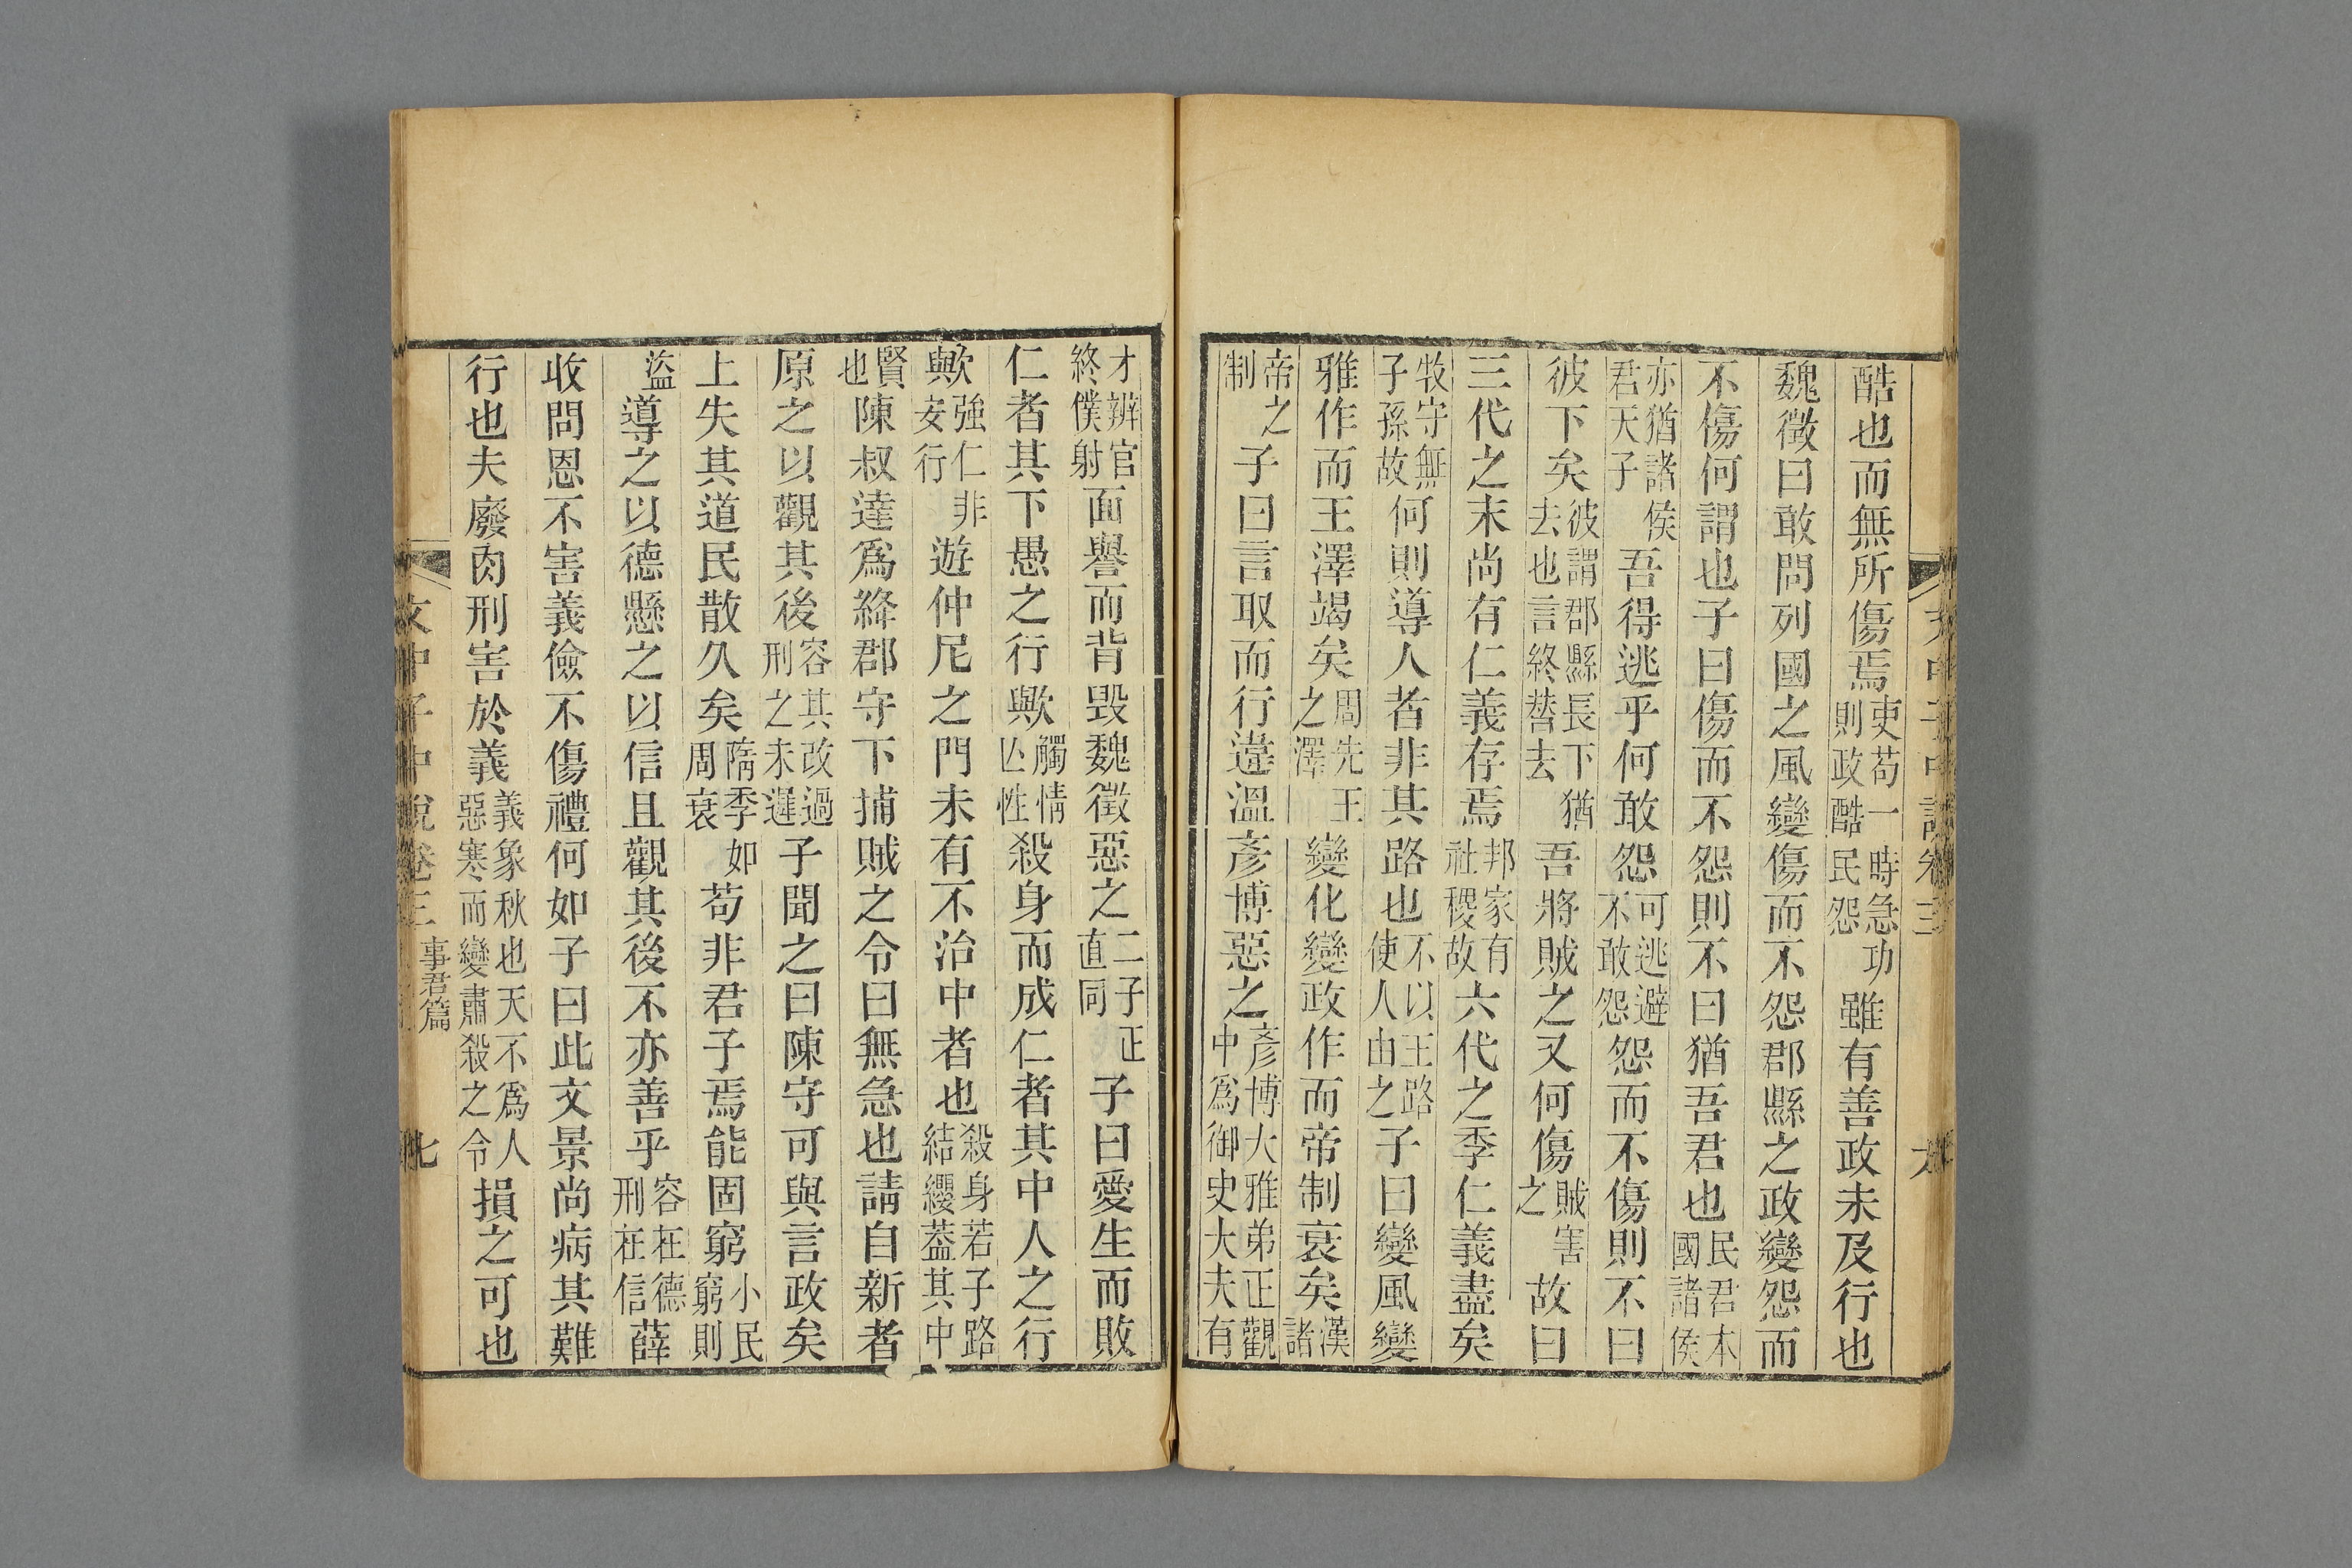 酷也而無所傷焉吏苟一時急功則政酷民怨雖有善政未及行也
魏徵曰敢問列國之風變傷而不怨郡縣之政變怨而
不傷何謂也子曰傷而不怨則不曰猶吾君也民君本國諸侯
亦猶諸侯君天子吾得逃乎何敢怨可逃避不敢怨怨而不傷則不曰
彼下矣彼謂郡縣長下猶去也言終替去吾將賊之又何傷賊害之故曰
三代之末尚有仁義存焉邦家有社稷故六代之季仁義盡矣
牧守無子孫故何則導人者非其路也不以王路使人由之子曰變風變
雅作而王澤竭矣周先王之澤變化變政作而帝制衰矣漢諸
帝之制子曰言取而行違溫彥博惡之彥博大雅弟正觀中爲御史大夫有
才辨官終僕射面譽而背毀魏徵惡之二子正直同子曰愛生而敗
仁者其下愚之行歟觸情亾性殺身而成仁者其中人之行
歟強仁非妄行遊仲尼之門未有不治中者也殺身若子路結纓蓋其中
賢也陳叔達爲絳郡守下捕賊之令曰無急也請自新者
原之以觀其後容其改過刑之未遲子聞之曰陳守可與言政矣
上失其道民散久矣隋季如周衰苟非君子焉能固窮小民窮則
盜導之以德懸之以信且觀其後不亦善乎容在德刑在信薛
收問恩不害義儉不傷禮何如子曰此文景尚病其難
行也夫廢肉刑害於義義象秋也天不爲人惡寒而變肅殺之令損之可也
文中子中說卷三 事君篇 七